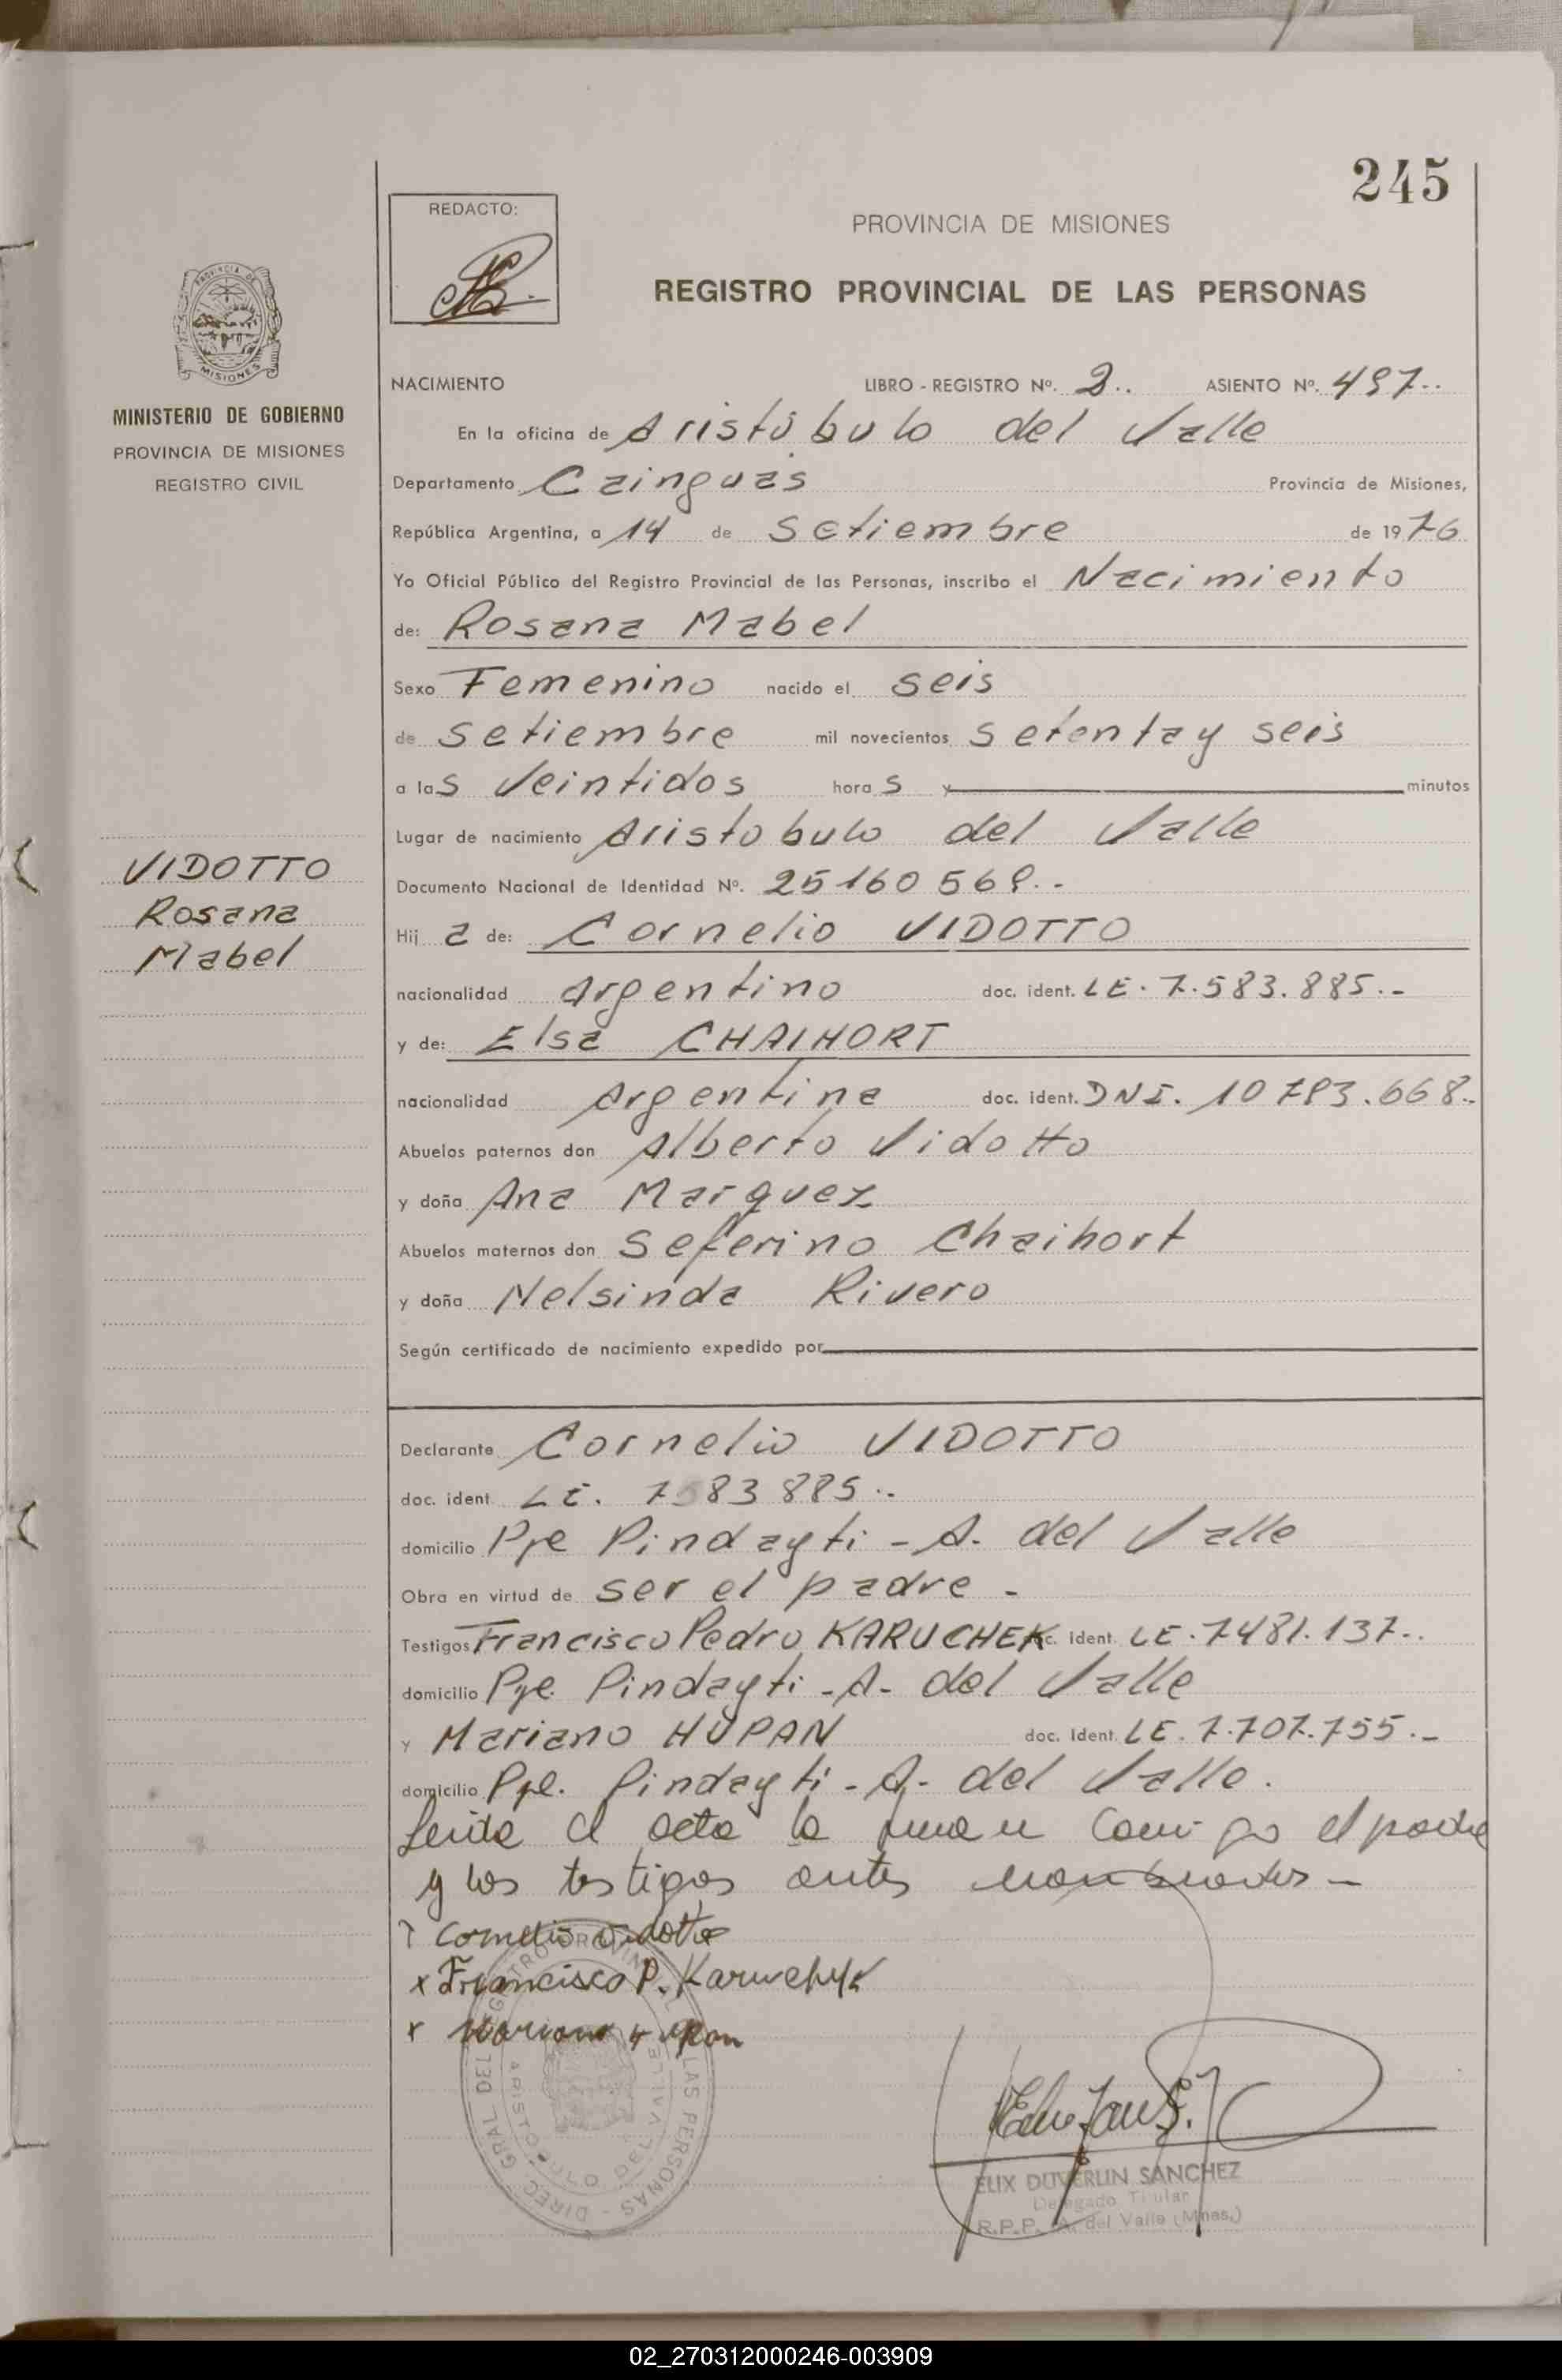 245
REDACTO:
PROVINCIA DE MISIONES
REGISTRO PROVINCIAL DE LAS PERSONAS
PROVINCIA DE
MISIONES
MINISTERIO DE GOBIERNO
PROVINCIA DE MISIONES
REGISTRO CIVIL
VIDOTTO
Rosana
Mabel
NACIMIENTO LIBRO - REGISTRO Nº. 2.. ASIENTO Nº. 497..
En la oficina de Aristóbulo del Valle
Departamento Cainguás Provincia de Misiones,
República Argentina, a 14 de Setiembre de 1976
Yo Oficial Público del Registro Provincial de las Personas, inscribo el Nacimiento
de: Rosana Mabel
Sexo Femenino nacido el seis
de setiembre mil novecientos setenta y seis
a las Veintidos horas y minutos
Lugar de nacimiento Aristobulo del Valle
Documento Nacional de Identidad Nº. 25160569..
Hij a de: Cornelio VIDOTTO
nacionalidad argentino doc. ident. LE. 7.583.885.-
y de: Elsa CHAIHORT
nacionalidad Argentina doc. ident. DNI. 10 793.668..
Abuelos paternos don Alberto Vidotto
y doña Ana Marquez
Abuelos maternos don Seferino Chaihort
y doña Nelsinda Rivero
Según certificado de nacimiento expedido por
Declarante Cornelio VIDOTTO
doc. ident. LE. 7583885..
domicilio Pje Pindayti - A. del Valle
Obra en virtud de ser el padre -
Testigos Francisco Pedro KARUCHEK doc. Ident. LE. 7481.137..
domicilio Pje. Pindayti - A- del Valle
y Mariano HUPAN doc. Ident. LE. 7.707.755.-
domicilio Pje. Pindayti - A- del Valle.
Leida el acta la firman conmigo el padre
y los testigos antes nombrados -
Cornelio Vidotto
x Francisco P. Karuchek
x Mariano Hupan
DIREC. GRAL. DEL REGISTRO PROVINCIAL DE LAS PERSONAS -
ARISTOBULO DEL VALLE
ELIX DUVERLIN SANCHEZ
Delegado Titular
R.P.P. A. del Valle (Mnes.)
02_270312000246-003909